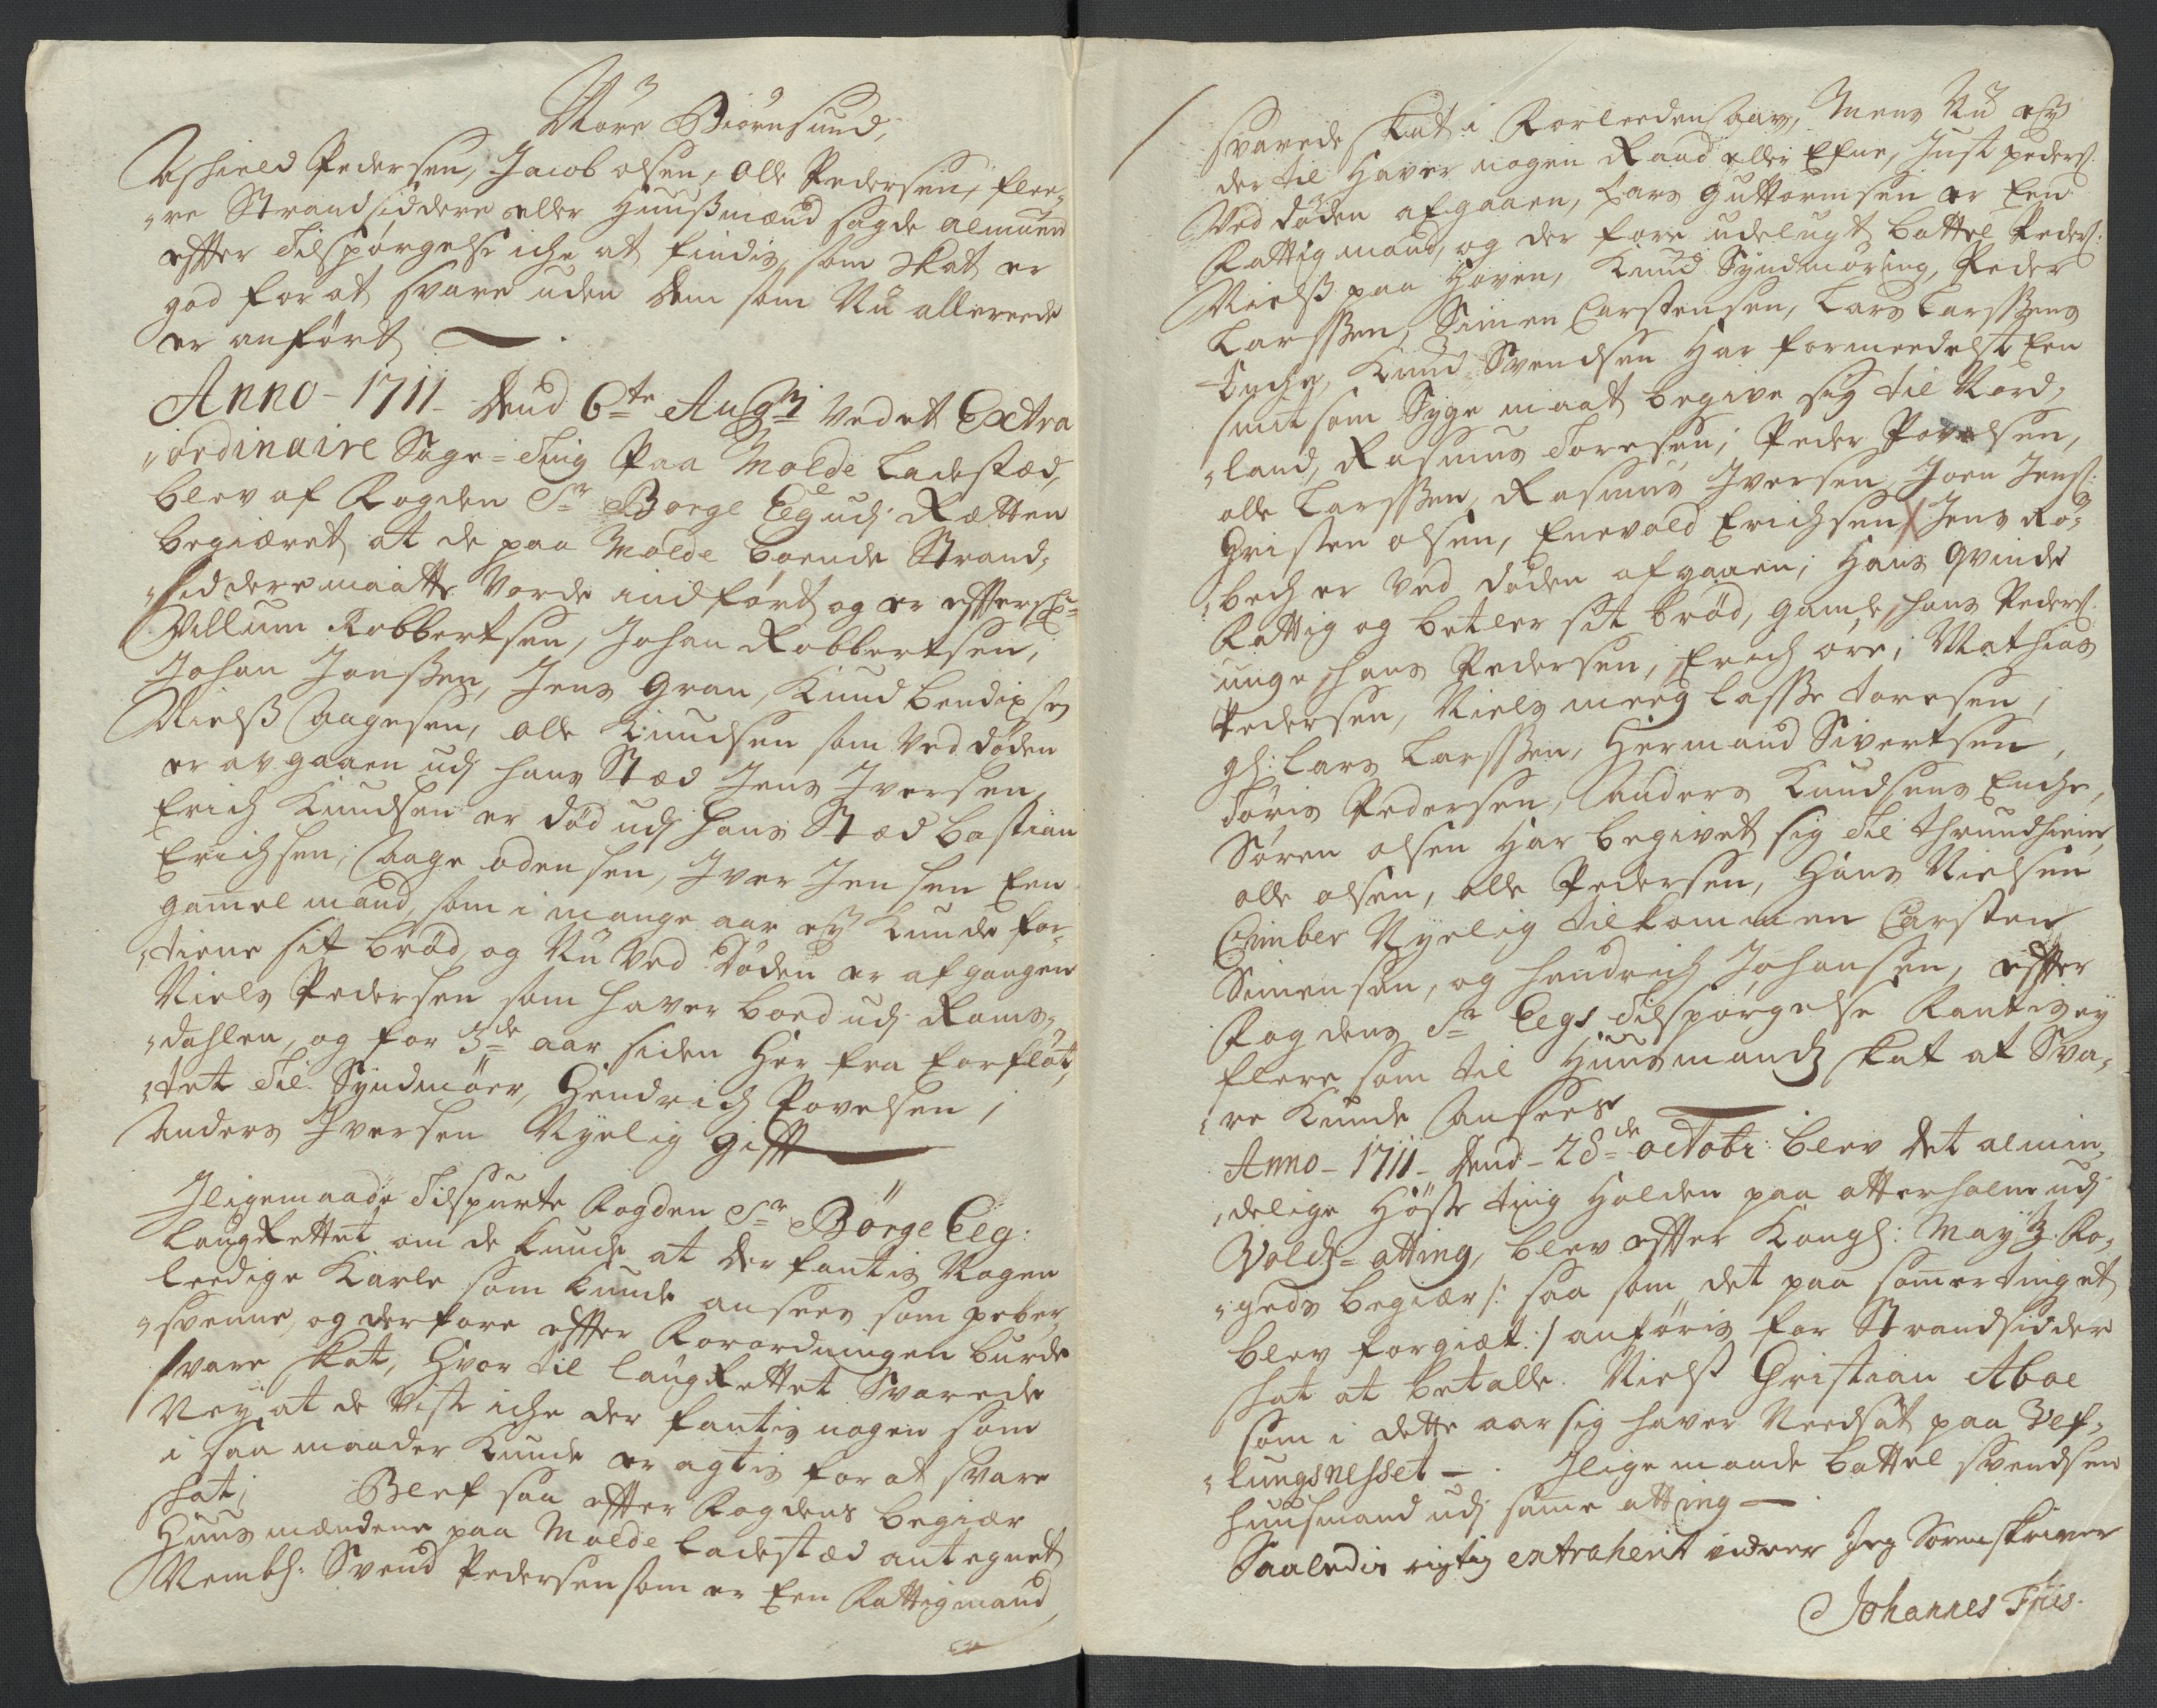 Nore Biörnsund,
Asbield Pedersen, Jacob olsen, Olle Pedersen, flee¬
re Strandsiddere eller Huußmænd sagde almuen
effter Tilspörgelse iche at findis, som Skat er
god for at svare uden dem som Nu allereede
er anfört
Anno - 1711 - Dend 6te Augti ved et Extra
ordinaire Sage=Ting Paa Molde Ladested,
blev af Fogden Sr Borge Eeg udj Rætten
begiæret at de paa Molde boende Strand¬
siddere maatte Vorde indfört og er effterschr:
Villum Robbertsen, Johan Robbertsen,
Johan Janßen, Jens Gran, Knud bendixsen
Nielß Aagesen, olle Knudsen som Ved döden
er avgaaen udj hans Stæd Jens Iversen
Erich Knudsen er död udj hans Stæd bastian
Erichsen, Aage odensen, Iver Jensen Een
gamel mand, som i mange aar ey Kunde for¬
tiene sit bröd, og Nu Ved Döden er afgangen
Niels Pedersen som haver boed udj Roms¬
dahlen, og for 3de aar siden Her fra forflöt¬
tet Til Syndmöer, Hendrich Povelsen,
Anders Iversen Nyelig gifft
Iligemaade Tilspurte Fogden Sr Börge Eeg:
LaugRettet om de kunde at der fantis Nogen
leedige Karle som kunde ansees som peber¬
svenne, og derfore effter Forordningen burde
svare skat, Hvor til LaugRettet Svarede
Ney, at de Viste iche der fantis nogen som
i saa maader Kunde er agtis for at svare
skat; Blef saa effter Fogdens begiær
Huusmændene paa Molde Ladestæd antegnet
Nembl: Svend Pedersen som er Een Fattigmand
svarede skat i Forleeden aar, Mens Nu ey
der til Haver nogen Raad eller Efne, Just peders:
Ved döden afgaaen, Lars Guttormsen er Een
Fattig mand, og der fore udelugt, battel Peders:
Nielß paa Haven, Knud Syndmöring, Peder
Larsßen, Simen Carstensen, Lars Larsßens
Enche, Knud Svendsen Har formeedelst Een
smitsom Syge maat begive sig til Nord¬
land, Rasmus Toresen, Peder Povelsen,
olle Larsßen, Rasmus Iversen, Joen Jens:
Christen olsen, Enevold Erichsen, Jens Rö¬
bech er Ved döden afgaaen, Hans qvinde
Fattig og betler sit bröd, gamle hans Peders:
unge hans Pedersen, Erich öre, Mathias
Pedersen, Niels meeg Lasße toresen,
gl: Lars Larsßen, Hermand Sivertsen,
Töris Pedersen, Anders Knudsens Enche,
Sören olsen Har begivet sig til Thrundhiem,
olle olsen, olle Pedersen, Hans Nielsen
Cimber Nyelig tilkommen Carsten
Simensen, og Hendrich Johansen, effter
Fogdens Sr Eegs Tilspörgelse Fantis ey
flere som til Huusmands skat at Sva¬
re kunde Ansees
Anno - 1711 - Dend - 28de octobr: blev det almin¬
delige Höste ting Holden paa otterholm udj
Volds=otting, blev effter Kongl: Maytz. Fo¬
geds begiær /: saa som det paa somertinget
blev forgiæt :/ anföris for Strandsidder
skat at betalle. Nielß Christian Aboe
som i dette aar sig haver Needsat paa Vef¬
lungsnesset - . Iligemaade battel svendsen
huusmand udj same otting -
Saaledis rigtig extraherit vidner Jeg Sorenskriver
Johannes Friis.